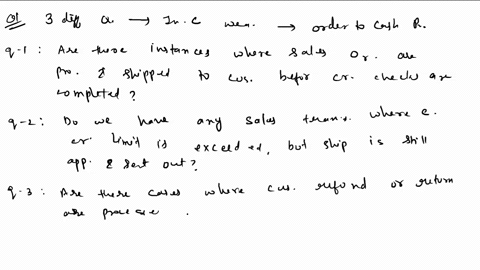 Q1 3 diff Q. → In. C wea. → order to Cash R.
q-1: Are these instances where sales Or. are
pro. & shipped to cus. befor cr. check are
completed?
q-2: Do we have any sales trans. where c.
cr. limit is exceeded, but ship is still
app. & sent out?
q-3: Are there cases where cus. refund or return
are processe .